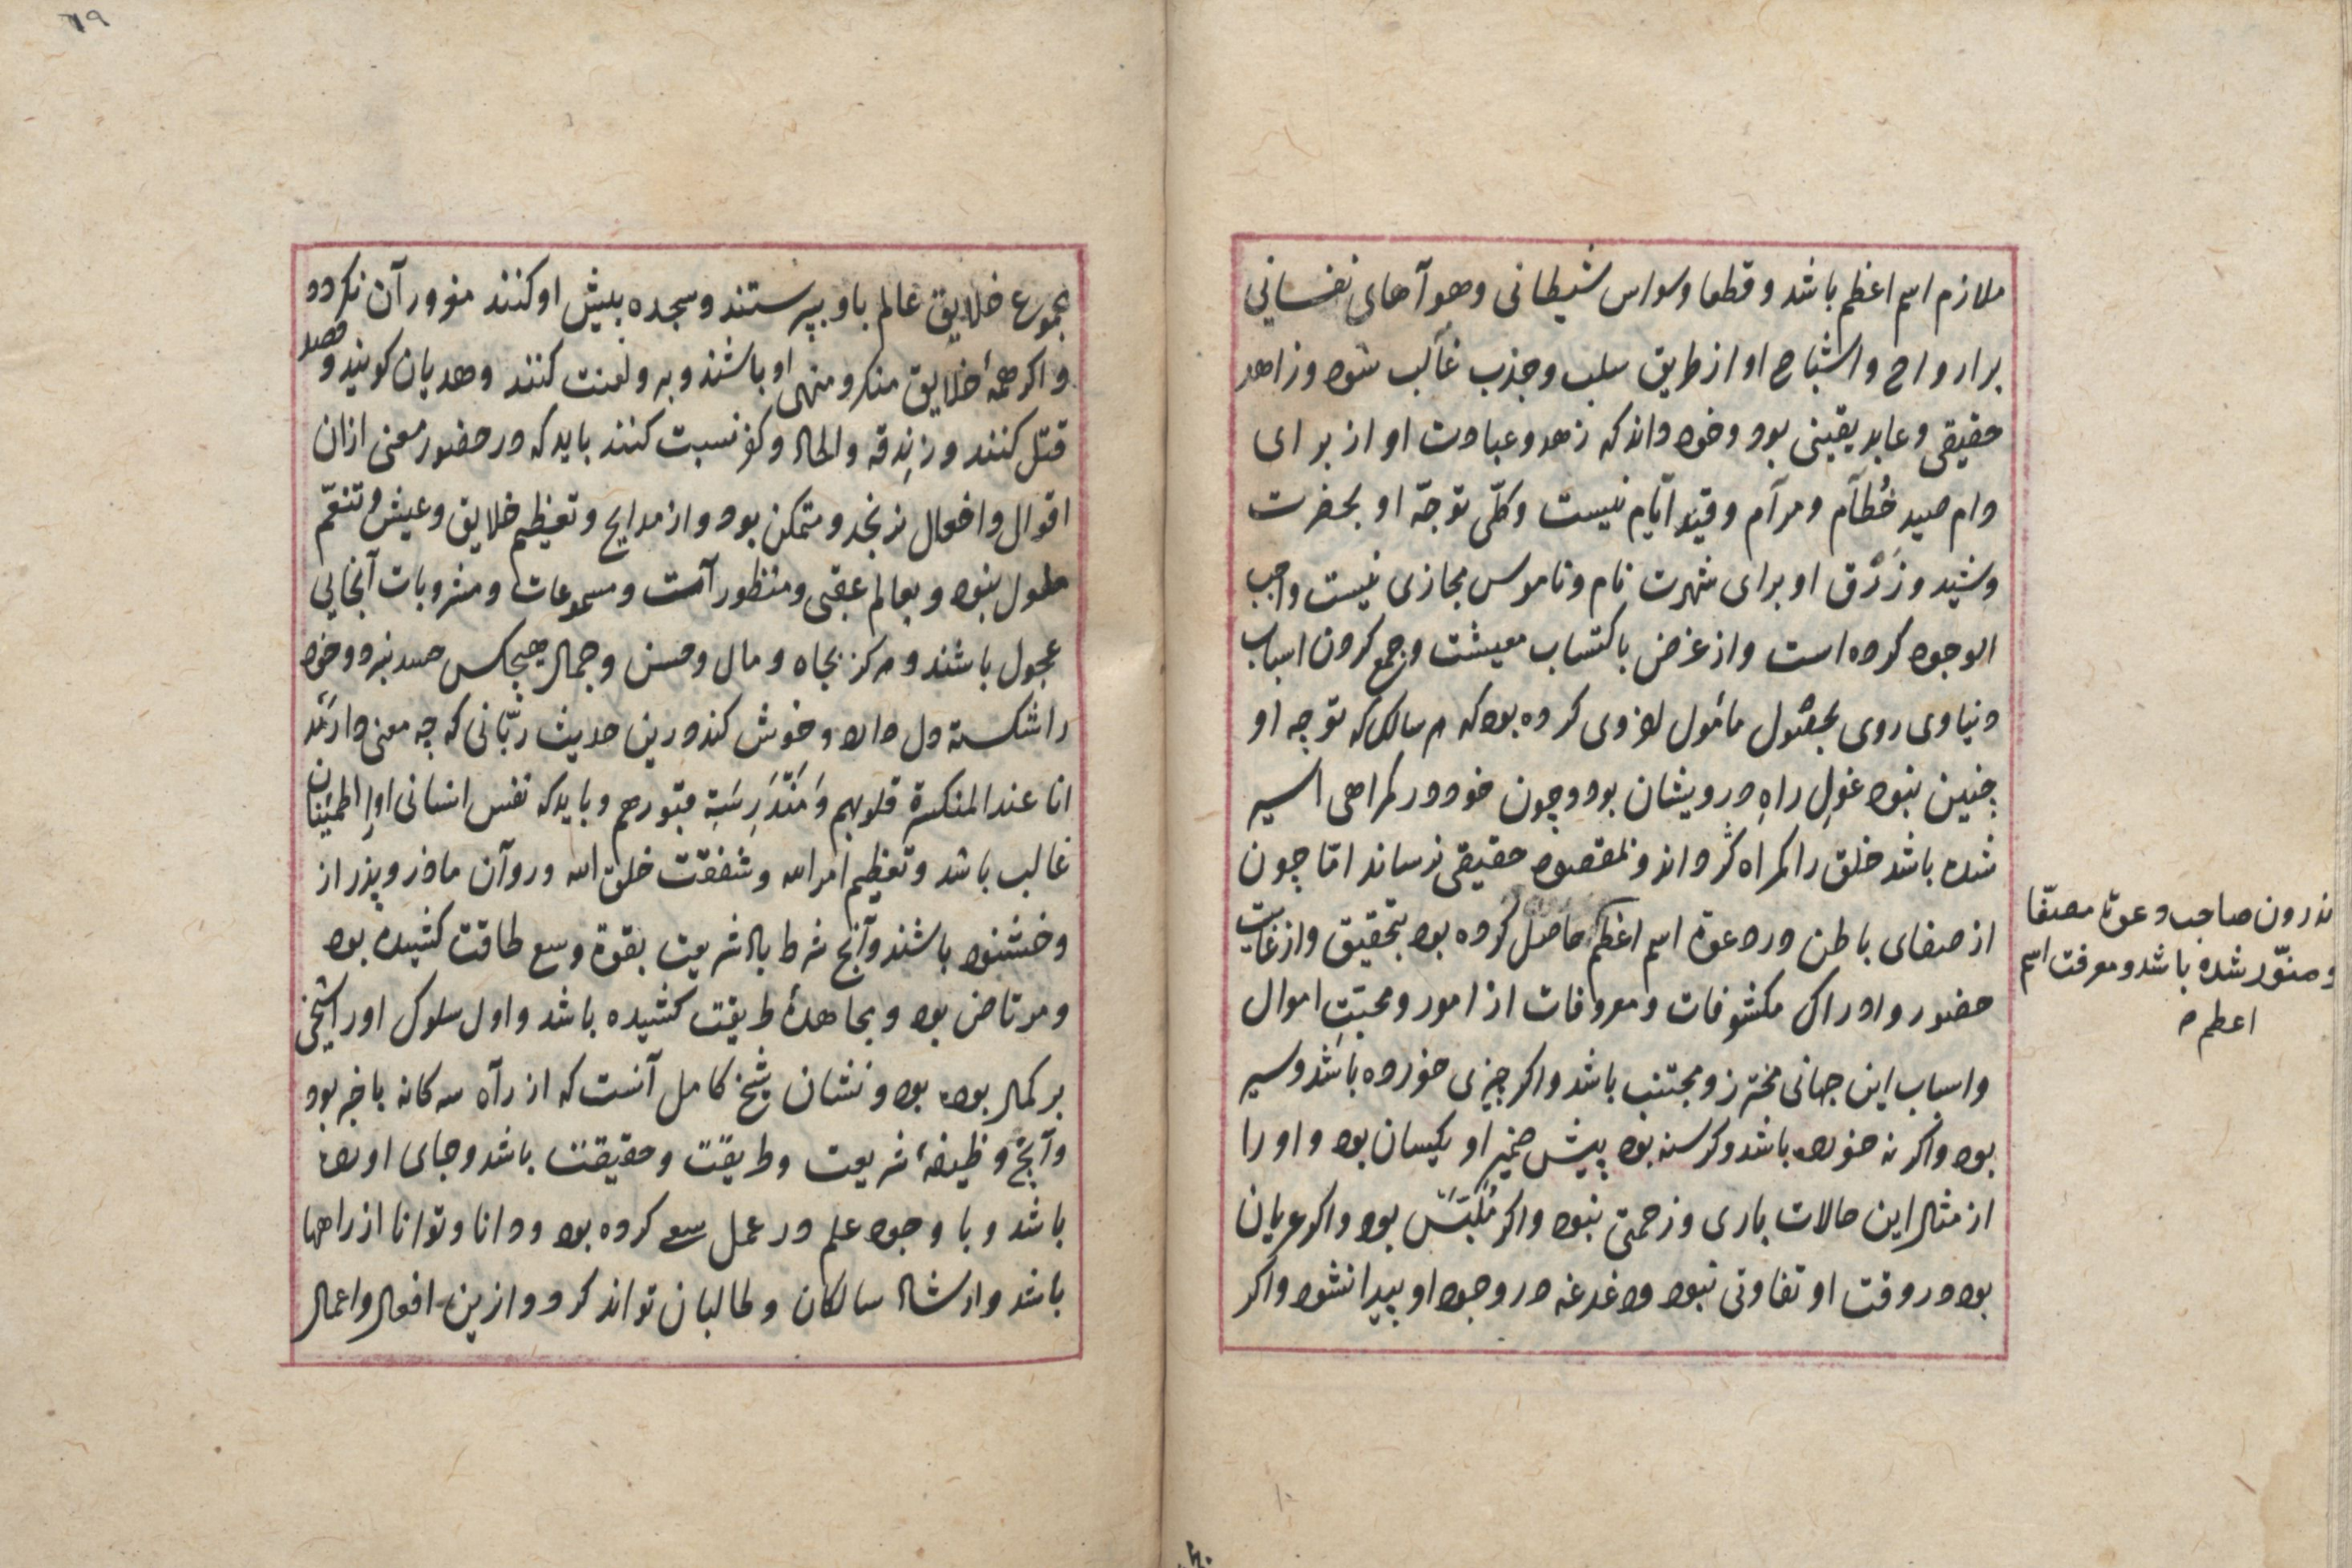 ملازم اسم اعظم باشد و قطعا وسواس شیطانی و هوآهای نفسانی
بر ارواح و اشباح او از طریق سلب و جذب غالب شود و زاهد
حقیقی و عابد یقینی بود و خود داند که زهد و عبادت او از برای
دام صید خُطآم و مرآم و قید ایّام نیست و کلّی توجّه او بحضرت
و شید و زَرْق او برای شهرت نام و ناموس مجازی نیست واجب
الوجود کرده است و از غرض باکتساب معیشت و جمع کردن اسباب
دنیاوی روی بحصُول مامُول اخروی کرده بود که هر سالک که توجه او
چنین نبود غولِ راهِ درویشان بود و چون خود در کمراهی اسیر
شده باشد خلق را کمراه کرداند و بمقصود حقیقی نرساند امّا چون
از صفای باطن در دعوة اسم اعظم حاصل کرده بود بتحقیق و از غایت
حضور و ادراک مکشوفات و معروفات از امور و محبّتِ اموال
و اسباب این جهانی محترز و مجتنب باشد و اکر چیزی خورده باشد و سیر
بود و اکر نه خورده باشد و کرسنه بود پیش ضمیر او یکسان بود و او را
از مثال این حالات باری و زحمتی نبود و اکر مُلَبَّس بود و اکر عریان
بود در وقت او تفاوتی نبود و دغدغه در وجود او پیدا نشود و اکر
ندرون صاحب دعوة مصفّا
و منوّر شده باشد و معرفت اسم
اعظم
مجموع خلایق عالم باو بپرستند و سجده پیش او کنند مغرور آن نکردد
و اکر همهٔ خلایق منکر و منهی او باشند و برو لعنت کنند و هدیان کویند و قصد
قتل کنند و زندقه و الحاد و کفر نسبت کنند باید که در حضور معنی ازان
اقوال و افعال نرنجد و متمکن بود و از مدایح و تعظیم خلایق و عیش و تنعّم
ملول نبود و بعالم عقبی و منظور آست و مسموعات و مشروبات آنجایی
عجول باشند و هرکز بجاه و مال و حسن و جمال هیچکس حسد نبرد و خود
را شکسته دل دارد و خوش کند درین حدیث ربّانی که چه معنی دارند
انا عند المنکسرة قلوبهم وَ مُنْدَرِسَةِ قبورهم و باید که نفس انسانی او اطمینان
غالب باشد و تعظیم امر الله و شفقت خلق الله و روآن مادر و پدر از
و خشنود باشند و آنچ شرط بالا شریعت بقوة و سع طاقت کشیده بود
و مرتاض بود و مجاهدهٔ طریقت کشیده باشد و اول سلوک او را شیخی
بر کمال بوده بود و نشان شیخ کامل آنست که از رآه سه کانه باخبر بود
و آنچ وظیفهٔ شریعت و طریقت و حقیقت باشد و جای اورده
باشد و با وجود علم در عمل سعی کرده بود و دانا و توانا از راهها
باشد و ارشاد سالکان و طالبان تواند کرد و ازین افعال و اعمال